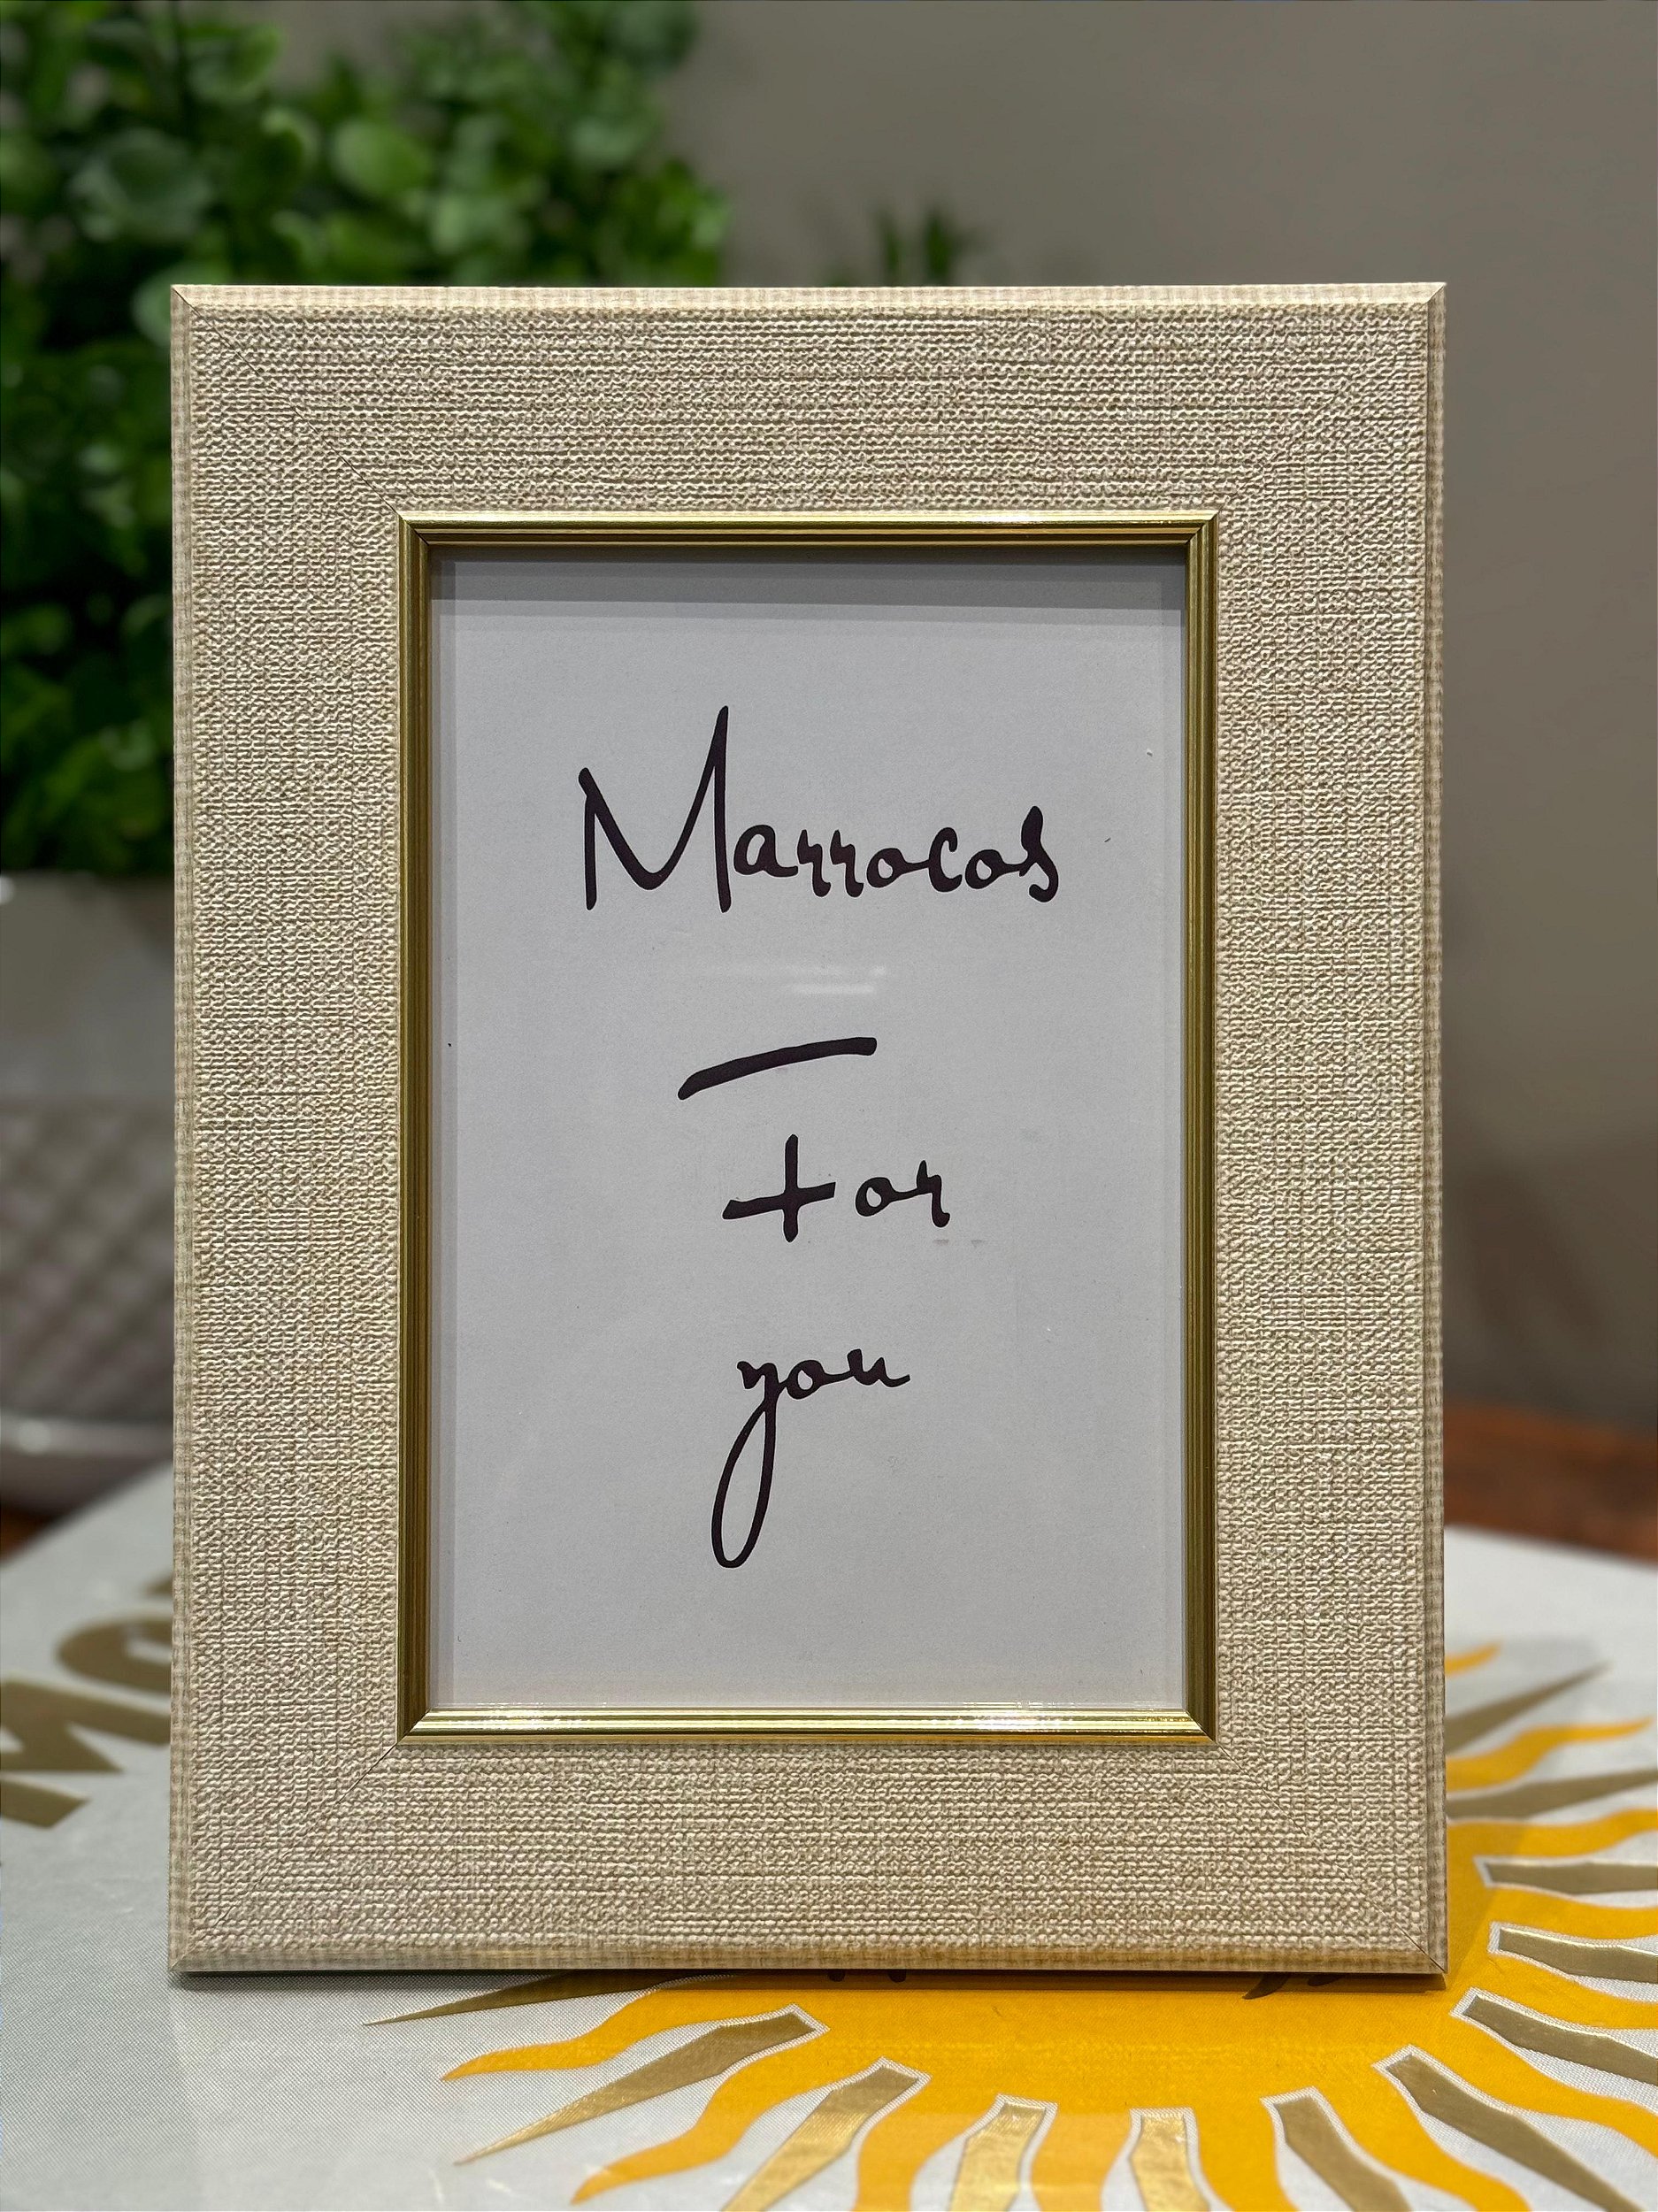 Marrocos
—
for
you